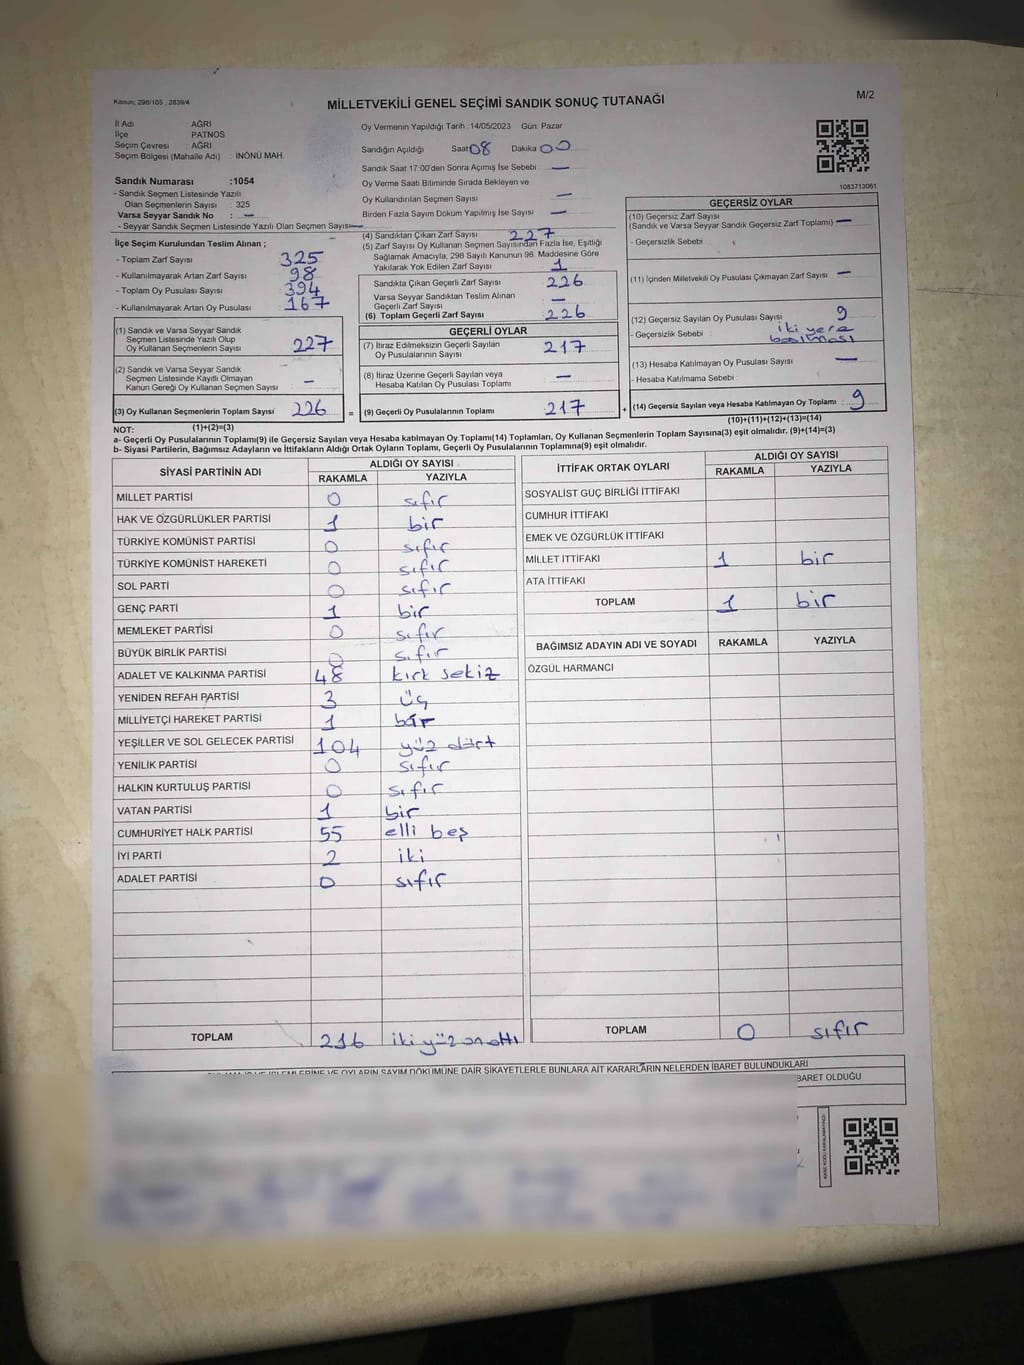 Kanun; 298/105 , 2839/4
MİLLETVEKİLİ GENEL SEÇİMİ SANDIK SONUÇ TUTANAĞI
M/2
İl Adı : AĞRI
İlçe PATNOS
Seçim Çevresi : AĞRI
Seçim Bölgesi (Mahalle Adı) : İNÖNÜ MAH.
Sandık Numarası :1054
- Sandık Seçmen Listesinde Yazılı
Olan Seçmenlerin Sayısı : 325
Varsa Seyyar Sandık No : —
- Seyyar Sandık Seçmen Listesinde Yazılı Olan Seçmen Sayısı —
Oy Vermenin Yapıldığı Tarih :14/05/2023 Gün: Pazar
Sandığın Açıldığı Saat 08 Dakika 00
Sandık Saat 17:00'den Sonra Açımış İse Sebebi —
Oy Verme Saati Bitiminde Sırada Bekleyen ve
Oy Kullandırılan Seçmen Sayısı —
Birden Fazla Sayım Döküm Yapılmış İse Sayısı —
1083713061
İlçe Seçim Kurulundan Teslim Alınan ;
- Toplam Zarf Sayısı 325
- Kullanılmayarak Artan Zarf Sayısı 98
- Toplam Oy Pusulası Sayısı 394
- Kullanılmayarak Artan Oy Pusulası 167
(1) Sandık ve Varsa Seyyar Sandık
Seçmen Listesinde Yazılı Olup
Oy Kullanan Seçmenlerin Sayısı 227
(2) Sandık ve Varsa Seyyar Sandık
Seçmen Listesinde Kayıtlı Olmayan
Kanun Gereği Oy Kullanan Seçmen Sayısı —
(3) Oy Kullanan Seçmenlerin Toplam Sayısı 226 =
(4) Sandıktan Çıkan Zarf Sayısı 227
(5) Zarf Sayısı Oy Kullanan Seçmen Sayısından Fazla İse, Eşitliği
Sağlamak Amacıyla, 298 Sayılı Kanunun 98. Maddesine Göre
Yakılarak Yok Edilen Zarf Sayısı 1
Sandıkta Çıkan Geçerli Zarf Sayısı 226
Varsa Seyyar Sandıktan Teslim Alınan
Geçerli Zarf Sayısı —
(6) Toplam Geçerli Zarf Sayısı 226
GEÇERLİ OYLAR
(7) İtiraz Edilmeksizin Geçerli Sayılan
Oy Pusulalarının Sayısı 217
(8) İtiraz Üzerine Geçerli Sayılan veya
Hesaba Katılan Oy Pusulası Toplamı —
(9) Geçerli Oy Pusulalarının Toplamı 217 +
GEÇERSİZ OYLAR
(10) Geçersiz Zarf Sayısı
(Sandık ve Varsa Seyyar Sandık Geçersiz Zarf Toplamı) —
- Geçersizlik Sebebi :
(11) İçinden Milletvekili Oy Pusulası Çıkmayan Zarf Sayısı —
(12) Geçersiz Sayılan Oy Pusulası Sayısı 9
- Geçersizlik Sebebi : iki yere
basılması
(13) Hesaba Katılmayan Oy Pusulası Sayısı —
- Hesaba Katılmama Sebebi :
(14) Geçersiz Sayılan veya Hesaba Katılmayan Oy Toplamı : 9
NOT: (1)+(2)=(3) (10)+(11)+(12)+(13)=(14)
a- Geçerli Oy Pusulalarının Toplamı(9) ile Geçersiz Sayılan veya Hesaba katılmayan Oy Toplamı(14) Toplamları, Oy Kullanan Seçmenlerin Toplam Sayısına(3) eşit olmalıdır. (9)+(14)=(3)
b- Siyasi Partilerin, Bağımsız Adayların ve İttifakların Aldığı Ortak Oyların Toplamı, Geçerli Oy Pusulalarının Toplamına(9) eşit olmalıdır.
SİYASİ PARTİNİN ADI ALDIĞI OY SAYISI
RAKAMLA YAZIYLA
MİLLET PARTİSİ 0 sıfır
HAK VE ÖZGÜRLÜKLER PARTİSİ 1 bir
TÜRKİYE KOMÜNİST PARTİSİ 0 sıfır
TÜRKİYE KOMÜNİST HAREKETİ 0 sıfır
SOL PARTİ 0 sıfır
GENÇ PARTİ 1 bir
MEMLEKET PARTİSİ 0 sıfır
BÜYÜK BİRLİK PARTİSİ 0 sıfır
ADALET VE KALKINMA PARTİSİ 48 kırk sekiz
YENİDEN REFAH PARTİSİ 3 üç
MİLLİYETÇİ HAREKET PARTİSİ 1 bir
YEŞİLLER VE SOL GELECEK PARTİSİ 104 yüz dört
YENİLİK PARTİSİ 0 sıfır
HALKIN KURTULUŞ PARTİSİ 0 sıfır
VATAN PARTİSİ 1 bir
CUMHURİYET HALK PARTİSİ 55 elli beş
İYİ PARTİ 2 iki
ADALET PARTİSİ 0 sıfır
TOPLAM 216 iki yüz on altı
İTTİFAK ORTAK OYLARI ALDIĞI OY SAYISI
RAKAMLA YAZIYLA
SOSYALİST GÜÇ BİRLİĞİ İTTİFAKI
CUMHUR İTTİFAKI
EMEK VE ÖZGÜRLÜK İTTİFAKI
MİLLET İTTİFAKI 1 bir
ATA İTTİFAKI
TOPLAM 1 bir
BAĞIMSIZ ADAYIN ADI VE SOYADI RAKAMLA YAZIYLA
ÖZGÜL HARMANCI
TOPLAM 0 sıfır
OYLARIN SAYIM DÖKÜMÜNE DAİR ŞİKAYETLERLE BUNLARA AİT KARARLARIN NELERDEN İBARET BULUNDUKLARI
BARET OLDUĞU